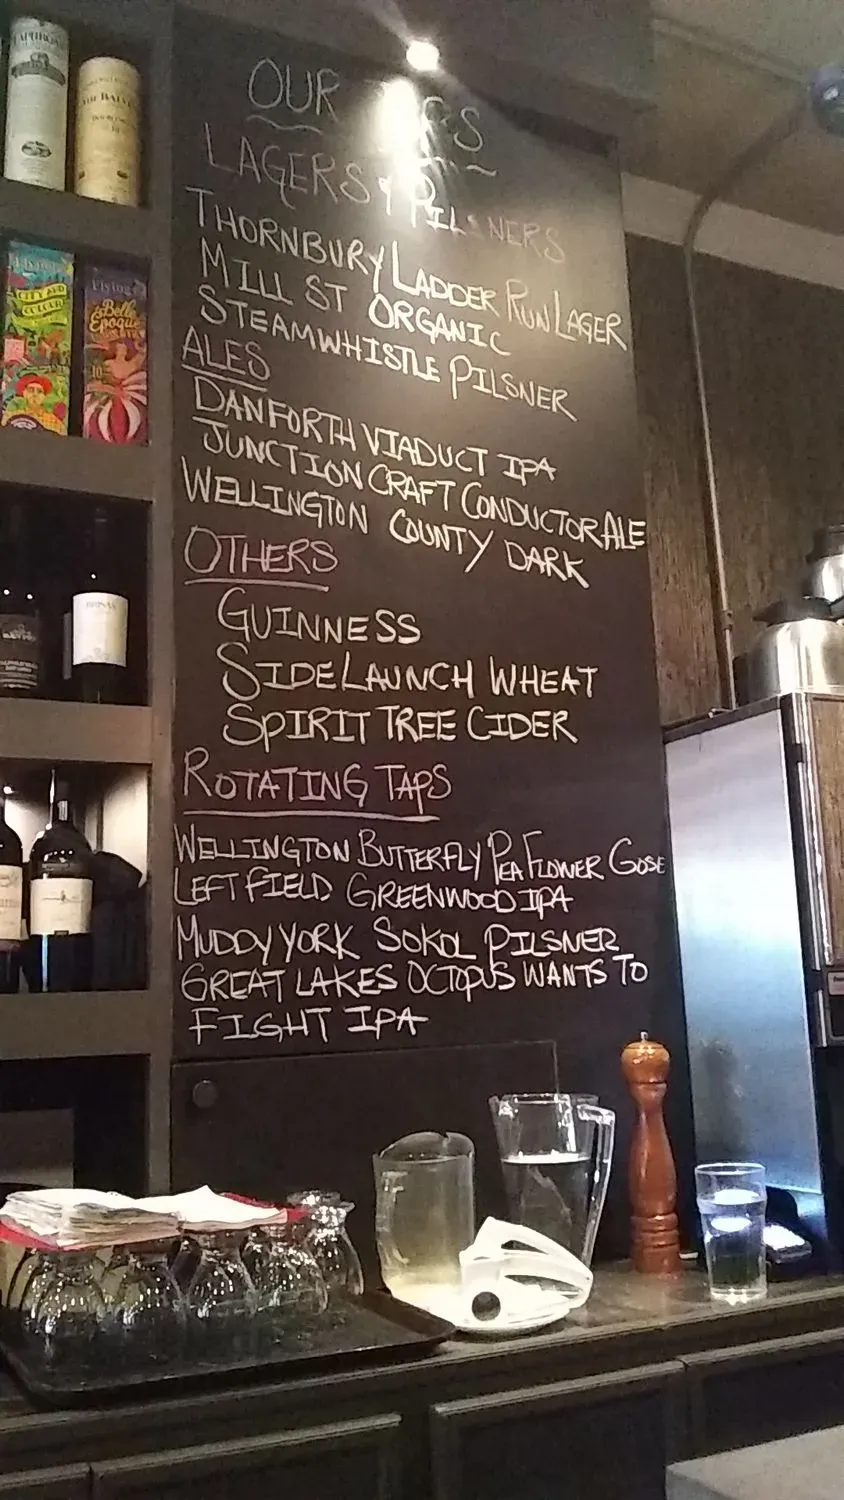 OUR
LAGERS & PILSNERS
THORNBURY LADDER RUN LAGER
MILL ST ORGANIC
STEAMWHISTLE PILSNER
ALES
DANFORTH VIADUCT IPA
JUNCTION CRAFT CONDUCTOR ALE
WELLINGTON COUNTY DARK
OTHERS
GUINNESS
SIDE LAUNCH WHEAT
SPIRIT TREE CIDER
ROTATING TAPS
WELLINGTON BUTTERFLY PEA FLOWER GOSE
LEFT FIELD GREENWOOD IPA
MUDDY YORK SOKOL PILSNER
GREAT LAKES OCTOPUS WANTS TO
FIGHT IPA
CITY AND
COLOUR
Flying
Belle
Epoque